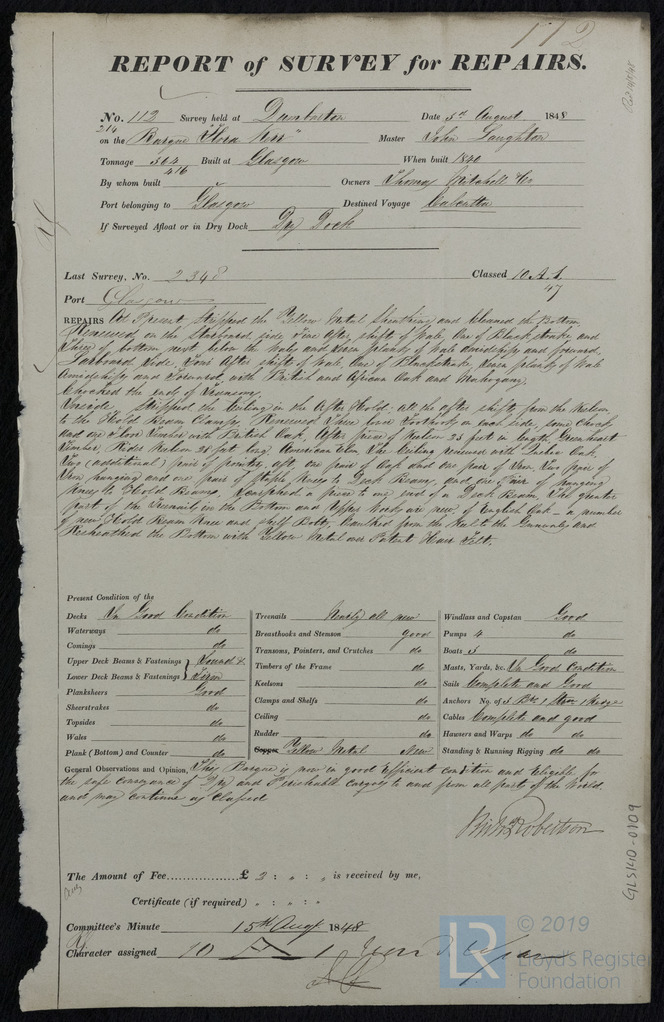 112
REPORT of SURVEY for REPAIRS.
No. 112 Survey held at Dumbarton Date 5th August 1848
214
on the Barque "Flora Kerr" Master John Laughton
Tonnage 504 Built at Glasgow When built 1840
416
By whom built Owners Thomas Mitchell & Co
Port belonging to Glasgow Destined Voyage Calcutta
If Surveyed Afloat or in Dry Dock Dry Dock
Last Survey, No. 2348 Classed 10 A 1
47
Port Glasgow
REPAIRS At Present Stripped the Yellow Metal Sheathing and Cleaned the Bottom,
Renewed on the Starboard side Five After shifts of Wale One of Blackstrake and
Three of bottom next below the Wales and Seven planks of Wale Amidships and forward.
Larboard Side, Four After shifts of Wale, One of Blackstrake, Seven planks of Wale
Amidships and Forward, with British and African Oak and Mahogany.
Chocked the ends of Transoms.
Inside Stripped the Ceiling in the After Hold all the after shifts from the Kelson
to the Hold Beam Clamps, Renewed Three Foothooks on each side, some Chocks
and one Floor Timber with British Oak, After piece of Kelson 25 feet in length Greenheart
Timber, Rider Kelson 28 feet long American Elm, The Ceiling renewed with Quebec Oak,
Two (additional) pair of pointers aft, one pair of Oak and one pair of Iron, Two pair of
Iron hanging and one pair of staple Knees to Deck Beams, and one pair of hanging
Knees to Hold Beams, Scarphed a piece to one end of a Deck Beam, The greater
part of the Treenails in the Bottom and Upper Works are new, of English Oak - a number
of new Hold Beam Knee and shelf Bolts, Caulked from the Keel to the Gunwales and
Resheathed the Bottom with Yellow Metal over Patent Hair Felt.
Present Condition of the
Decks In Good Condition
Waterways do
Comings do
Upper Deck Beams & Fastenings } Sound &
Lower Deck Beams & Fastenings } Firm
Planksheers Good
Sheerstrakes do
Topsides do
Wales do
Plank (Bottom) and Counter do
Treenails Nearly all new
Breasthooks and Stemson good
Transoms, Pointers, and Crutches do
Timbers of the Frame do
Keelsons do
Clamps and Shelfs do
Ceiling do
Rudder do
Copper Yellow Metal New
Windlass and Capstan Good
Pumps 4 do
Boats 3 do
Masts, Yards, &c. In Good Condition
Sails Complete and Good
Anchors No. of 3 Brs 1 Strm 1 Kedge
Cables Complete and good
Hawsers and Warps do do
Standing & Running Rigging do do
General Observations and Opinion, This Barque is now in good Efficient condition and Eligible for
the safe conveyance of Dry and Perishable cargoes to and from all parts of the World
and may continue as Classed
Robertson
The Amount of Fee £ 2 : „ : „ is received by me,
Certificate (if required) „ : „ : „
Committee's Minute 15th Augt 1848
Character assigned 10 A 1
GLS140-0109
© 2019
LR Lloyd's Register
Foundation